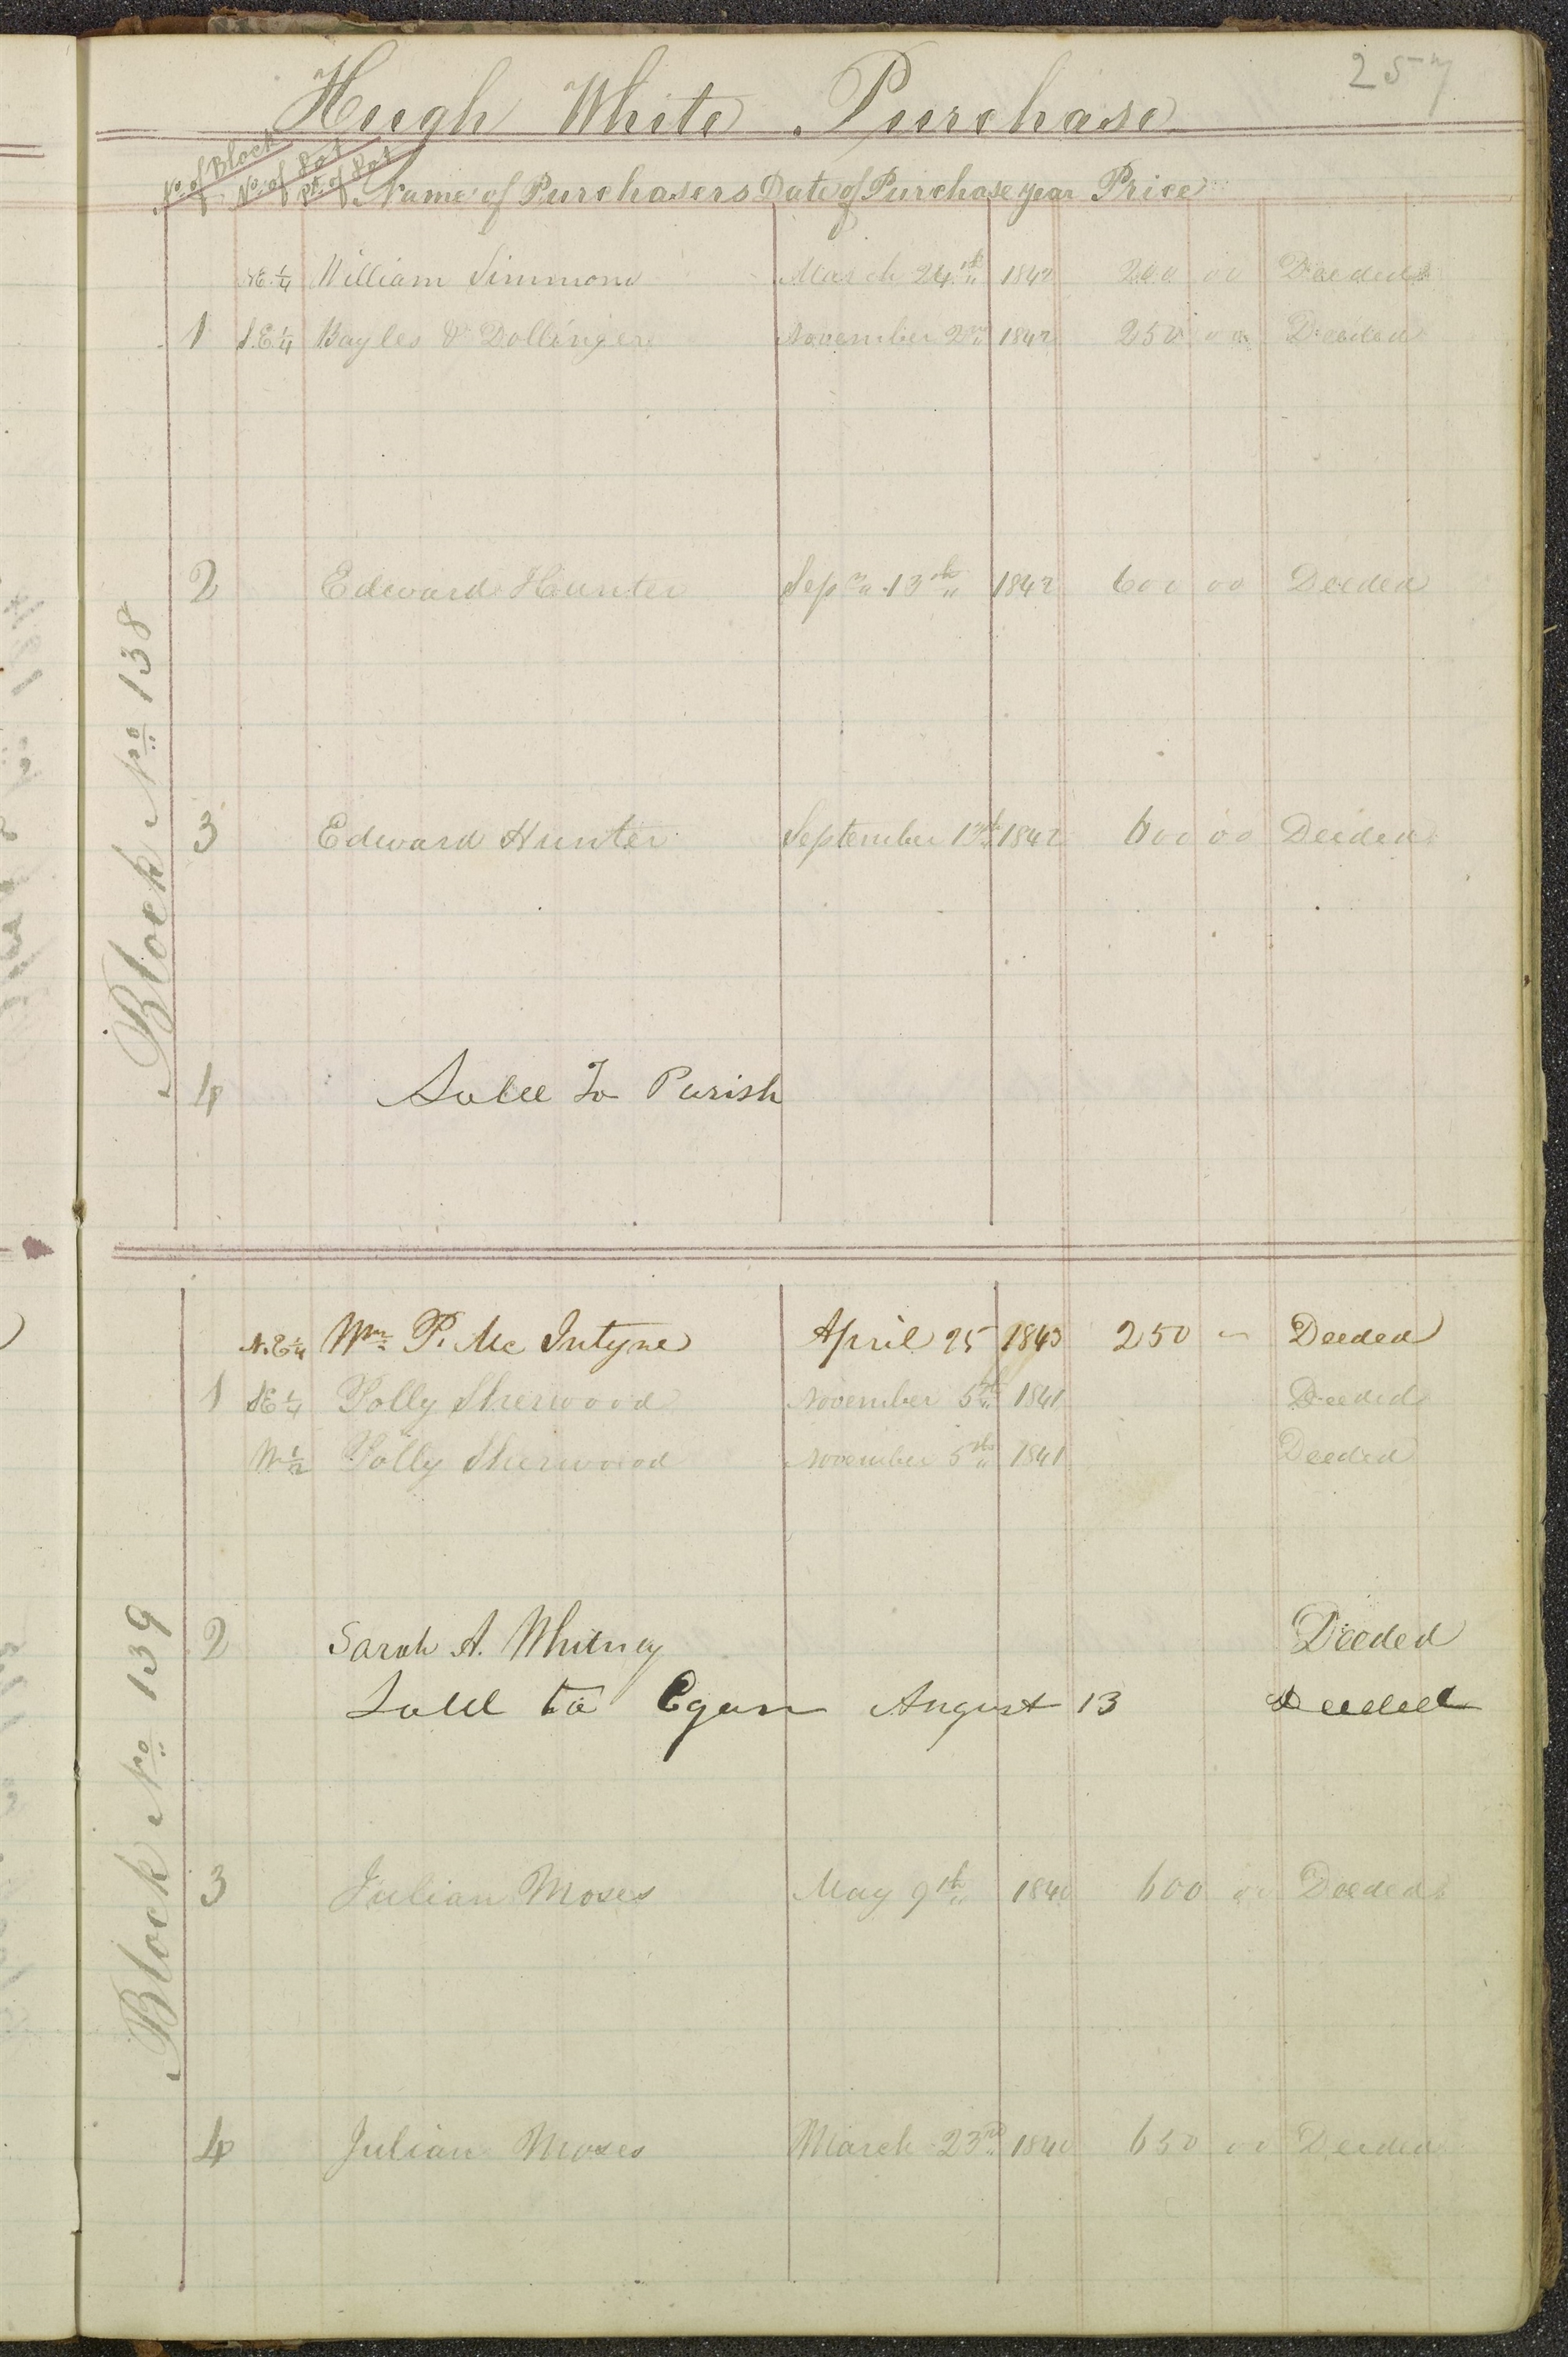 257
Hugh White Purchase
No. of Block No. of Lot Pt. of Lot Name of Purchasers Date of Purchase year Price
Block No 138
N.E. 1/4 William Simmons March 24th 1842 200 00 Deeded
1 S.E. 1/4 Bayles & Dollinger November 2nd 1842 250 00 Deeded
2 Edward Hunter Sepm 13th 1842 600 00 Deeded
3 Edward Hunter September 13th 1842 600 00 Deeded
4 Sold To Parish
Block No 139
N.E 1/4 Wm P. Mc Intyre April 25 1843 250 – Deeded
1 S.E 1/4 Polly Sherwood November 5th 1841 Deeded
W 1/2 Polly Sherwood November 5th 1841 Deeded
2 Sarah A. Whitney Deeded
Sold to Egan August 13 Deeded
3 Julian Moses May 9th 1840 600 00 Deeded
4 Julian Moses March 23rd 1840 650 00 Deeded